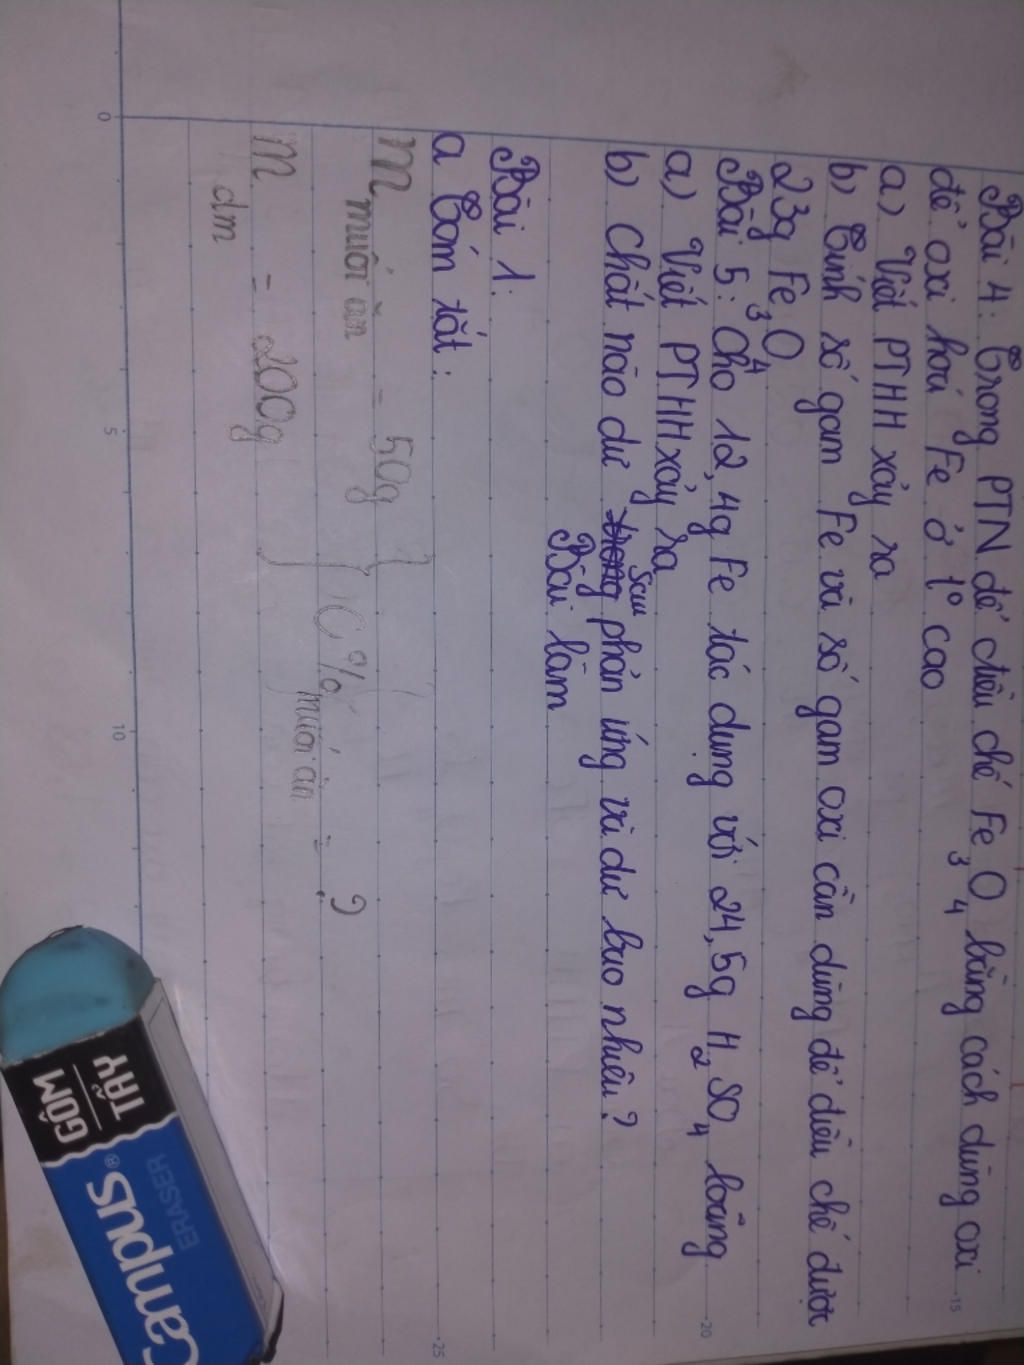 Bài 4. Trong PTN để điều chế Fe3O4 bằng cách dùng oxi
để oxi hoá Fe ở t° cao
a) Viết PTHH xảy ra
b) Tính số gam Fe và số gam oxi cần dùng để điều chế được
23g Fe3O4
Bài 5: Cho 12,4g Fe tác dụng với 24,5g H2SO4 loãng
a) Viết PTHH xảy ra
b) Chất nào dư sau phản ứng và dư bao nhiêu?
Bài làm
Bài 1.
a Tóm tắt:
m muối ăn = 50g
C% muối ăn = ?
m dm = 200g
0
5
10
15
20
25
GÔM
TẨY
Campus®
ERASER